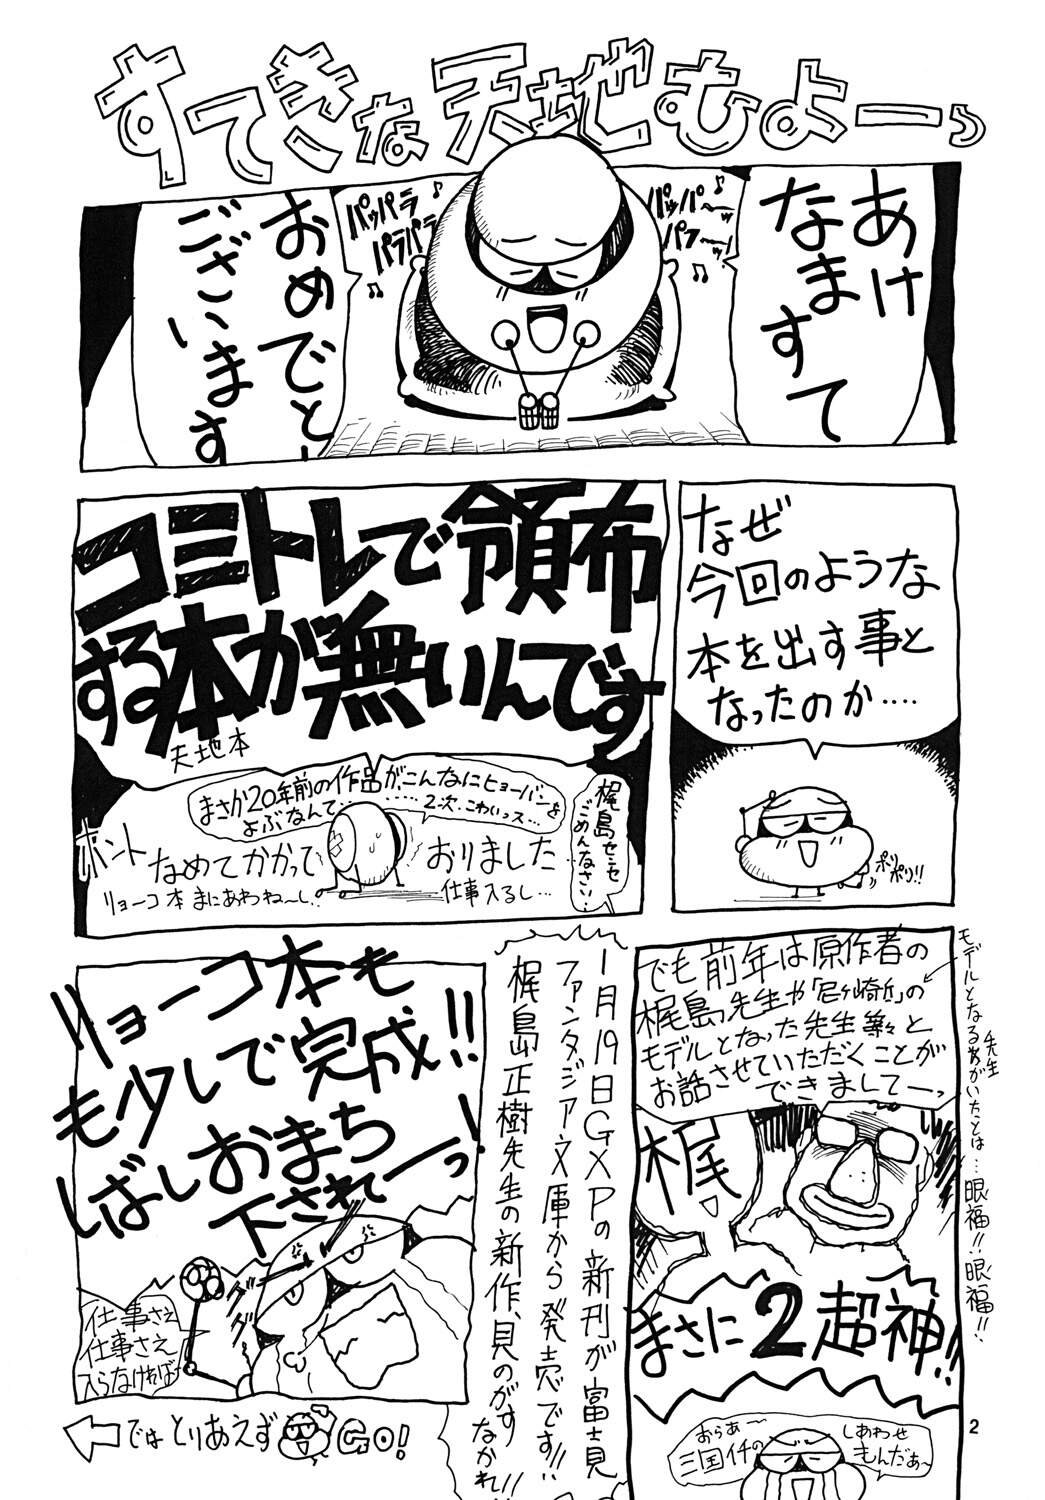 すてきな天地むよーっ
あけ
なまして
おめでとー
ございます
パッパラ
パラパラ
パッパ〜ッ
パフ〜ッ!
なぜ
今回のような
本を出す事と
なったのか‥‥
ポリ
ポリ!!
コミトレで領布
する本が無いんです
天地本
まさか20年前の作品がこんなにヒョーバンを
よぶなんて‥‥‥‥
2次、こわいっス…
梶島センセ
ごめんなさい‥
ホント
なめてかかって
おりました
リョーコ本まにあわね〜し。
仕事入るし…
でも前年は原作者の
梶島先生や「尼ヶ崎丘」の
モデルとなった先生等々と
お話させていただくことが
できましてーっ
モデルとなるあがいたとは…眼福!!眼福!!
先生
梶
まさに2超神!!
おらあ〜
三国イチの
しあわせ
もんだぁ〜
1月19日GXPの新刊が富士見
ファンタジア文庫から発売です!!
梶島正樹先生の新作、見のがす
なかれ!!
リョーコ本も
も少しで完成!!
しばしおまち
下されてーっ!
仕事さえ
仕事さえ
入らなければ
ではとりあえず
GO!
2